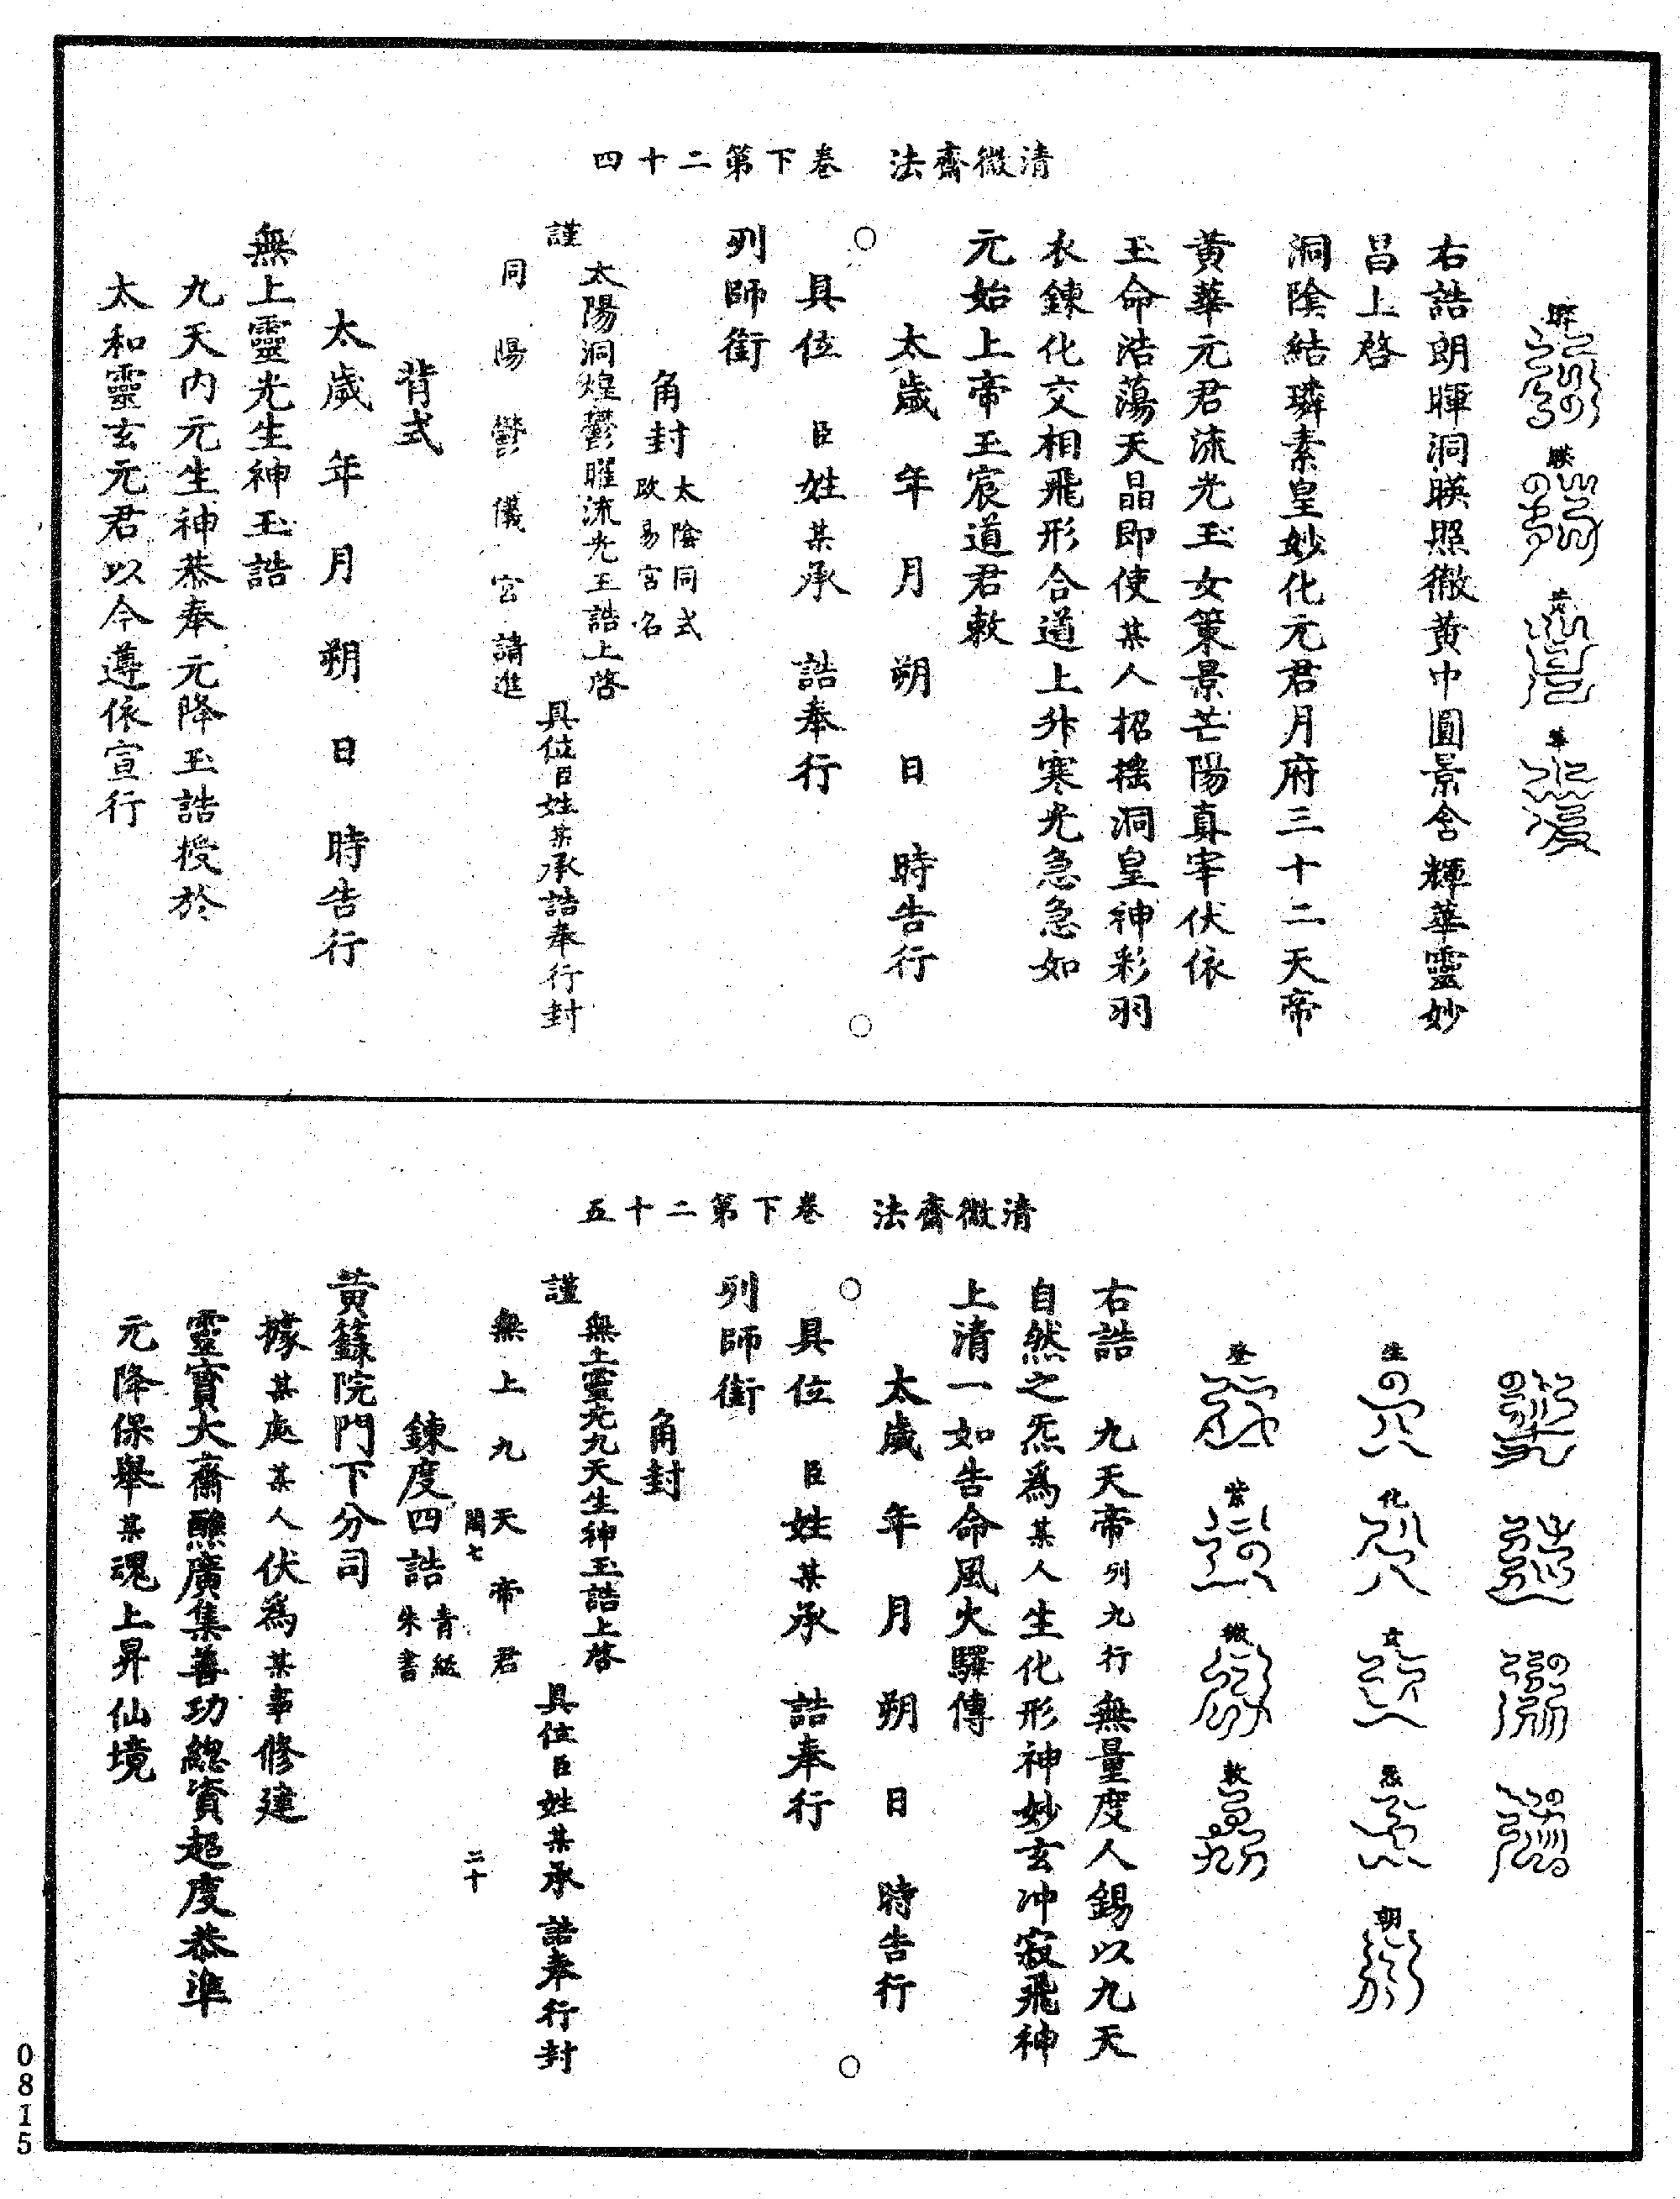 清微齋法　卷下第二十四
暎
芒
華
右誥朗暉洞暎照徹黃中圓景含輝華靈妙
昌上啓
洞陰結璘素皇妙化元君月府三十二天帝
黃華元君流光玉女策景芒陽真宰伏依
玉命浩蕩天晶即使某人招搖洞皇神彩羽
衣鍊化交相飛形合道上升寒光急急如
元始上帝玉宸道君敕
太歲　年　月　朔　日　時告行
○　○
具位　臣姓某承　誥奉行
列師銜
角封 太陰同式改易宮名
太陽洞煌鬱曜流光玉誥上啓
謹　具位臣姓某承誥奉行封
同陽鬱儀宮請進
背式
太歲　年　月　朔　日　時告行
無上靈光生神玉誥
九天內元生神恭奉元降玉誥授於
太和靈玄元君以今遵依宣行
清微齋法　卷下第二十五
生　化　玄　炁　朝
登　紫　微　敕
右誥　九天帝列九行無量度人錫以九天
自然之炁爲某人生化形神妙玄冲寂飛神
上清一如告命風火驛傳
太歲　年　月　朔　日　時告行
○　○
具位　臣姓某承　誥奉行
列師銜
角封
無上靈光九天生神玉誥上啓
謹　具位臣姓某承　誥奉行封
無上九天帝君
闕七　二十
鍊度四誥 青紙朱書
黃籙院門下分司
據某處某人伏爲某事修建
靈寶大齋醮廣集善功總資超度恭準
元降保舉某魂上昇仙境
0815